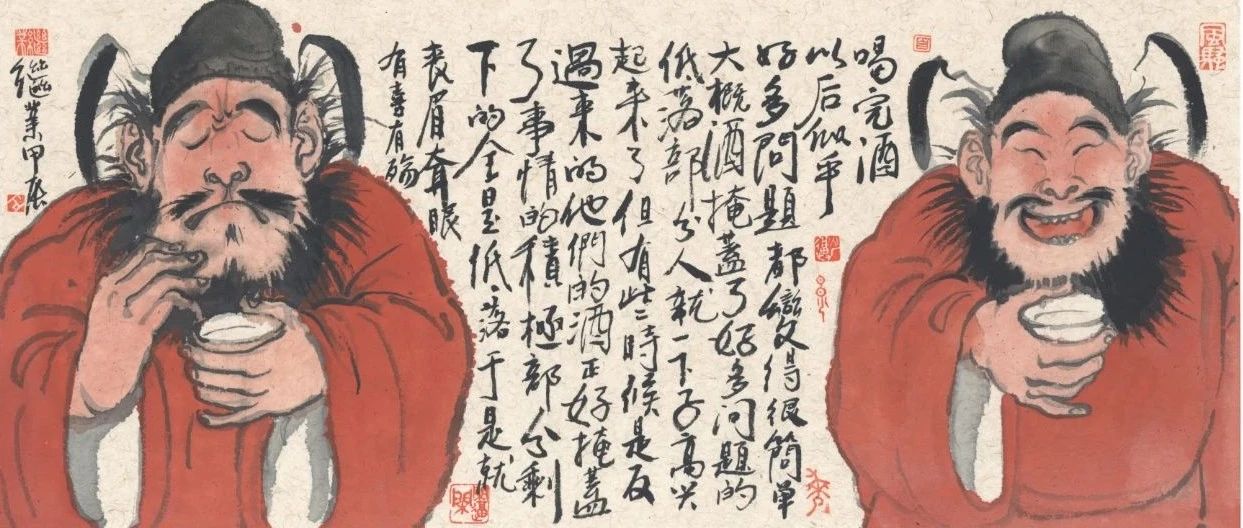 喝完酒
以后似乎
好多問題都變得很簡单
大概酒掩蓋了好多问題的
低落部分人就一下子高兴
起来了但有些時候是反
過来的他們的酒正好掩蓋
了事情的積極部分剩
下的全是低落于是就
喪眉耷眼
有喜有殇
繼業甲辰